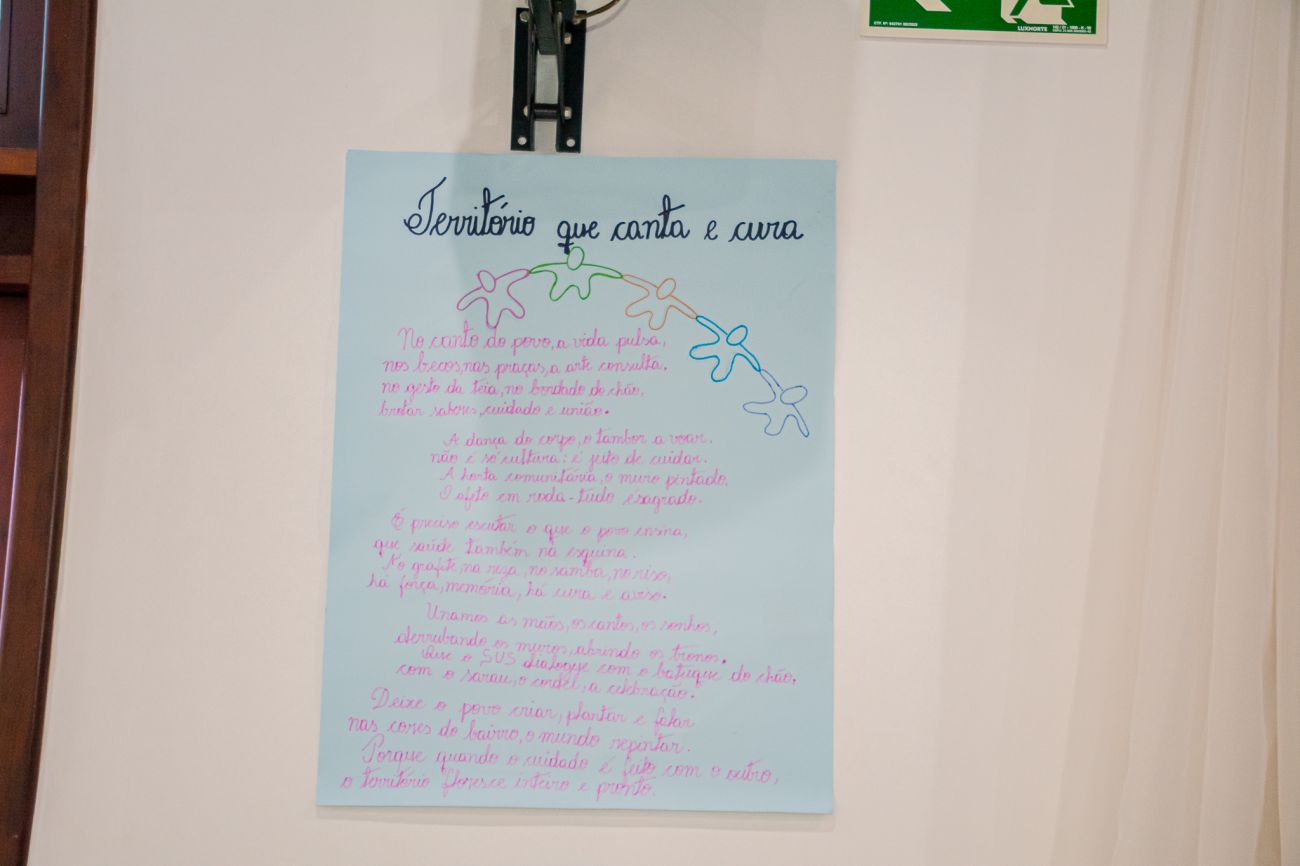 LUXNORTE
Território que canta e cura
No canto do povo, a vida pulsa,
nos becos, nas praças, a arte consulta.
no gesto da teia, no bordado do chão,
brotar sabores, cuidado e união.
A dança do corpo, o tambor a voar.
não é só cultura: é jeito de cuidar.
A horta comunitária, o muro pintado,
O afeto em roda - tudo é sagrado.
É preciso escutar o que o povo ensina,
que saúde também na esquina.
No grafite, na reza, no samba, no riso,
há força, memória, há cura e aviso.
Unamos as mãos, os cantos, os sonhos,
derrubando os muros, abrindo os tronos.
Que o SUS dialogue com o batuque do chão,
com o sarau, o cordel, a celebração.
Deixe o povo criar, plantar e falar
nas cores do bairro, o mundo repintar.
Porque quando o cuidado é feito com o outro,
o território floresce inteiro e pronto.